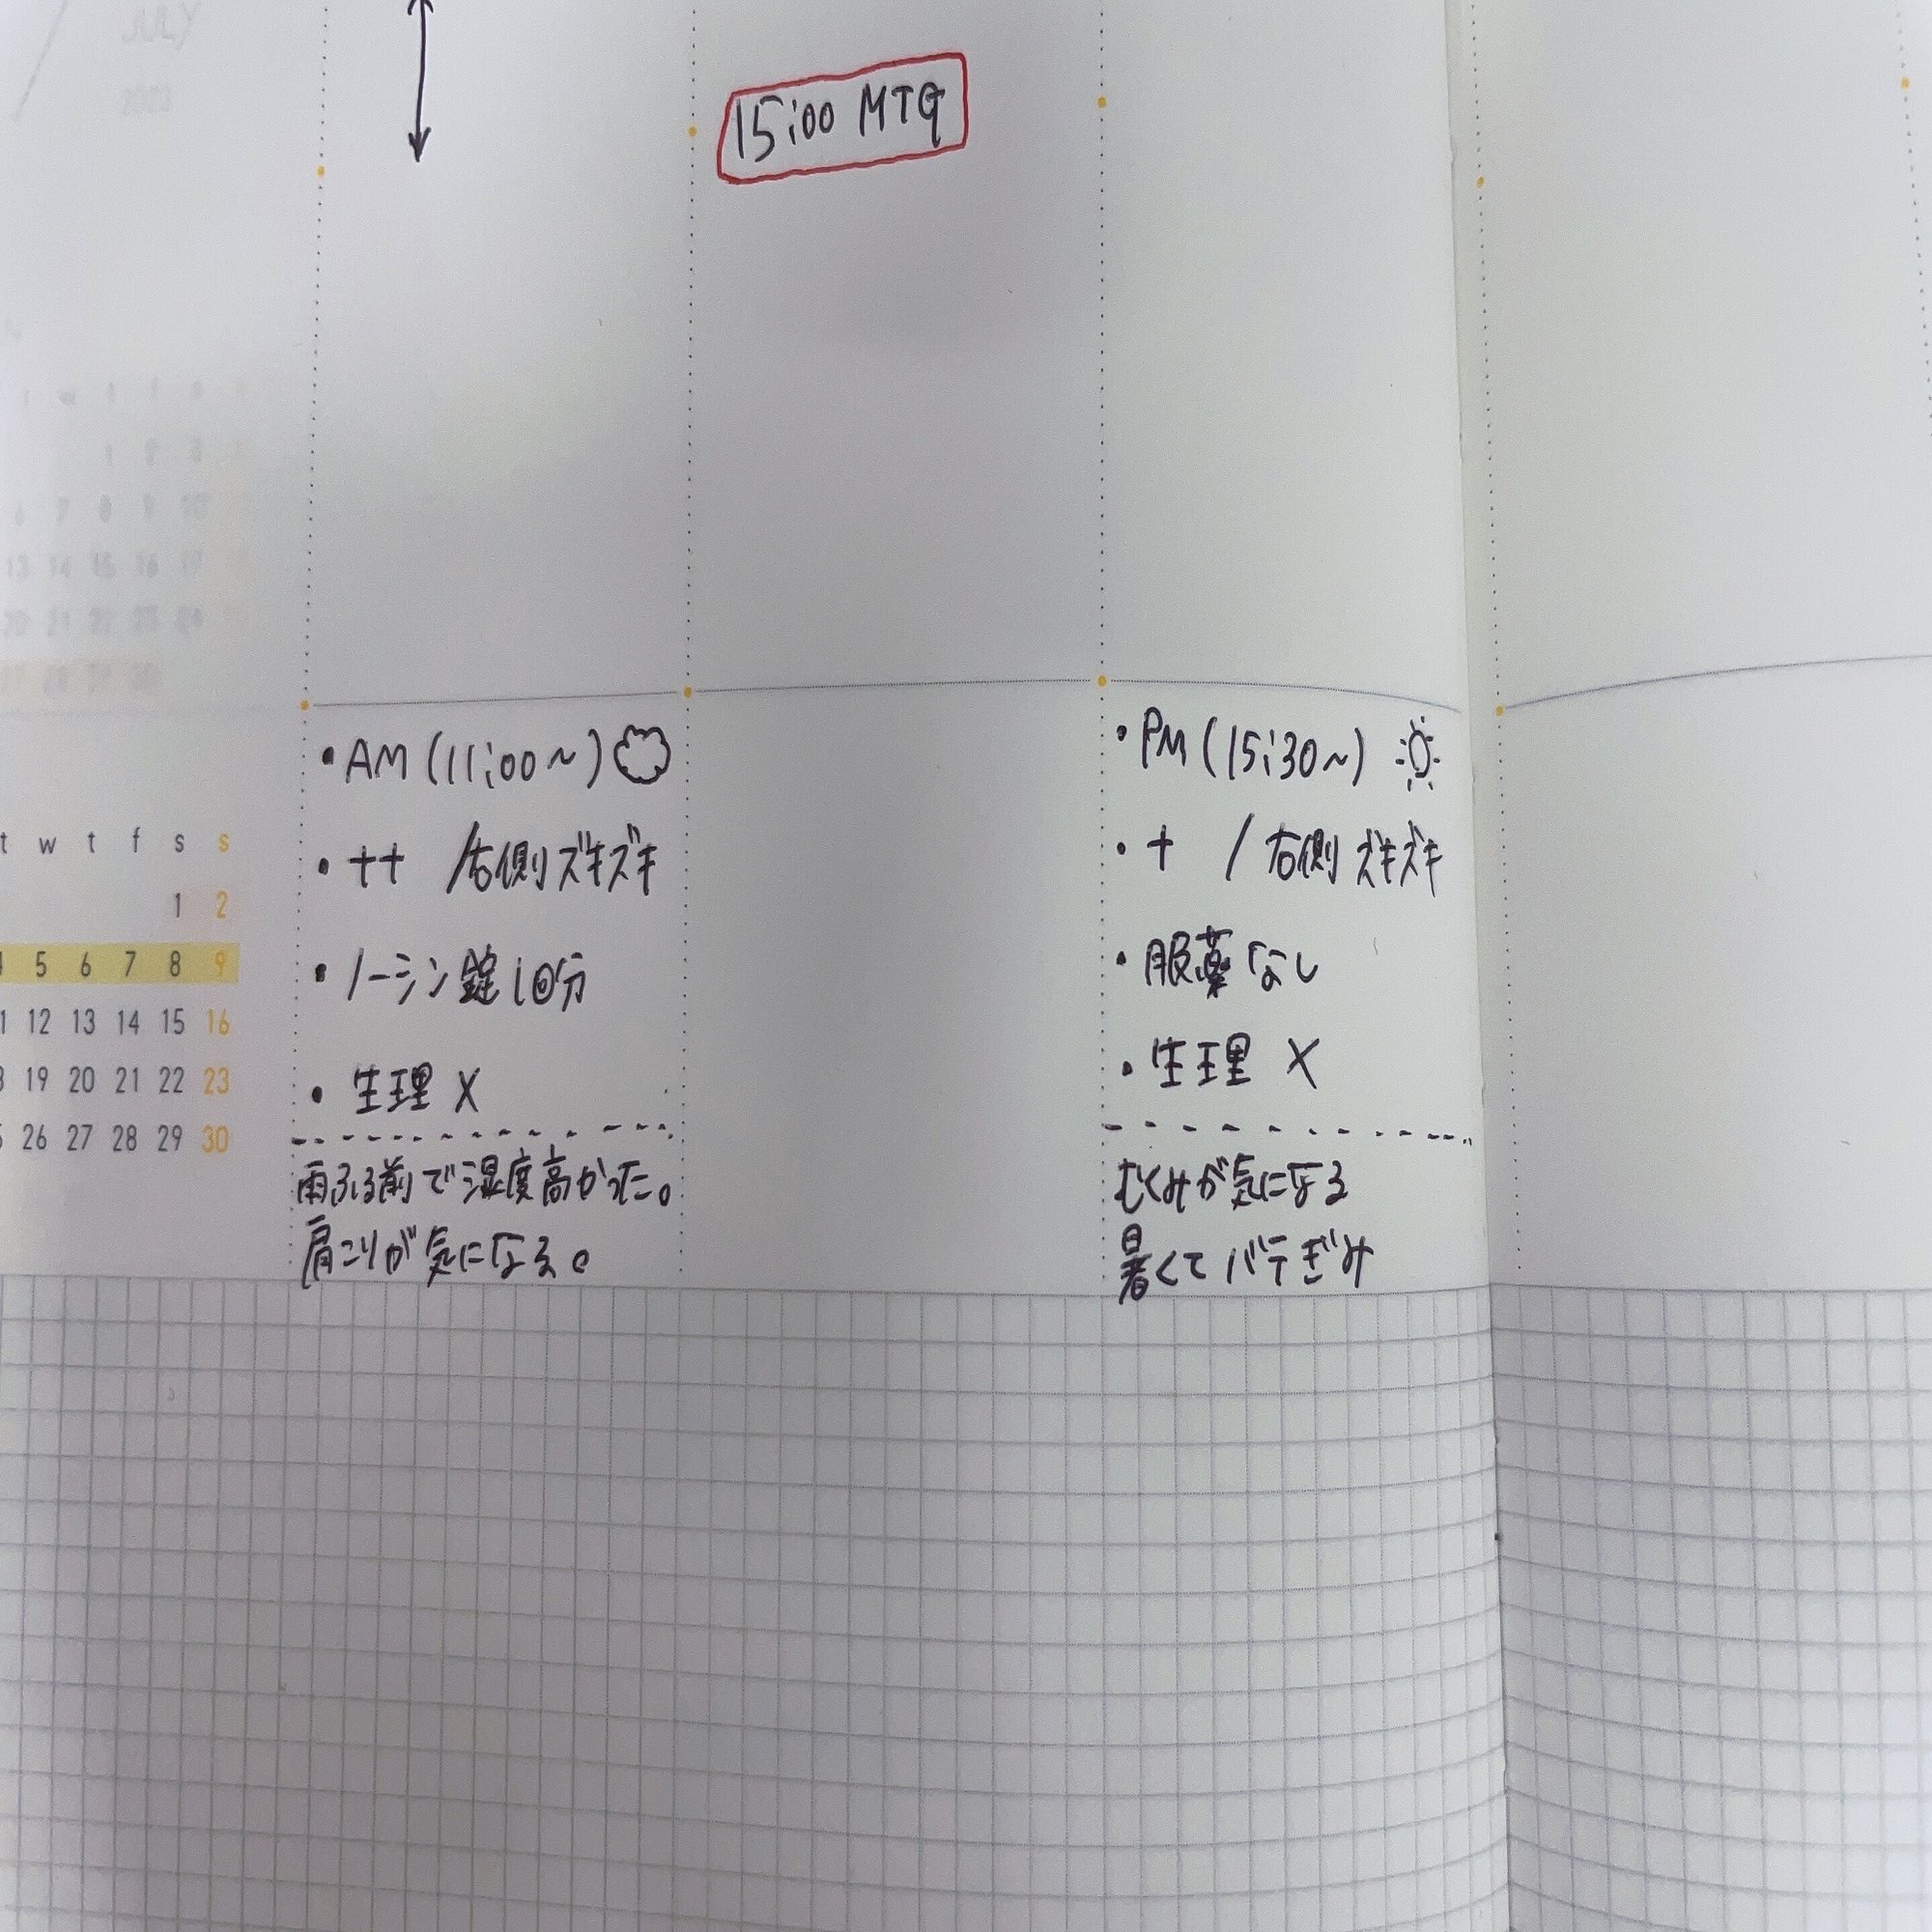 JULY
2023
15:00 MTG
w t f s
1 2 3
6 7 8 9 10
13 14 15 16 17
20 21 22 23 24
27 28 29 30
t w t f s s
1 2
4 5 6 7 8 9
11 12 13 14 15 16
18 19 20 21 22 23
25 26 27 28 29 30
・AM (11:00~)
・++ /右側ズキズキ
・ノーシン錠1回分
・生理 X
雨ふる前で湿度高かった。
肩こりが気になる。
・PM (15:30~)
・+ / 右側ズキズキ
・服薬なし
・生理 X
むくみが気になる
暑くてバテぎみ